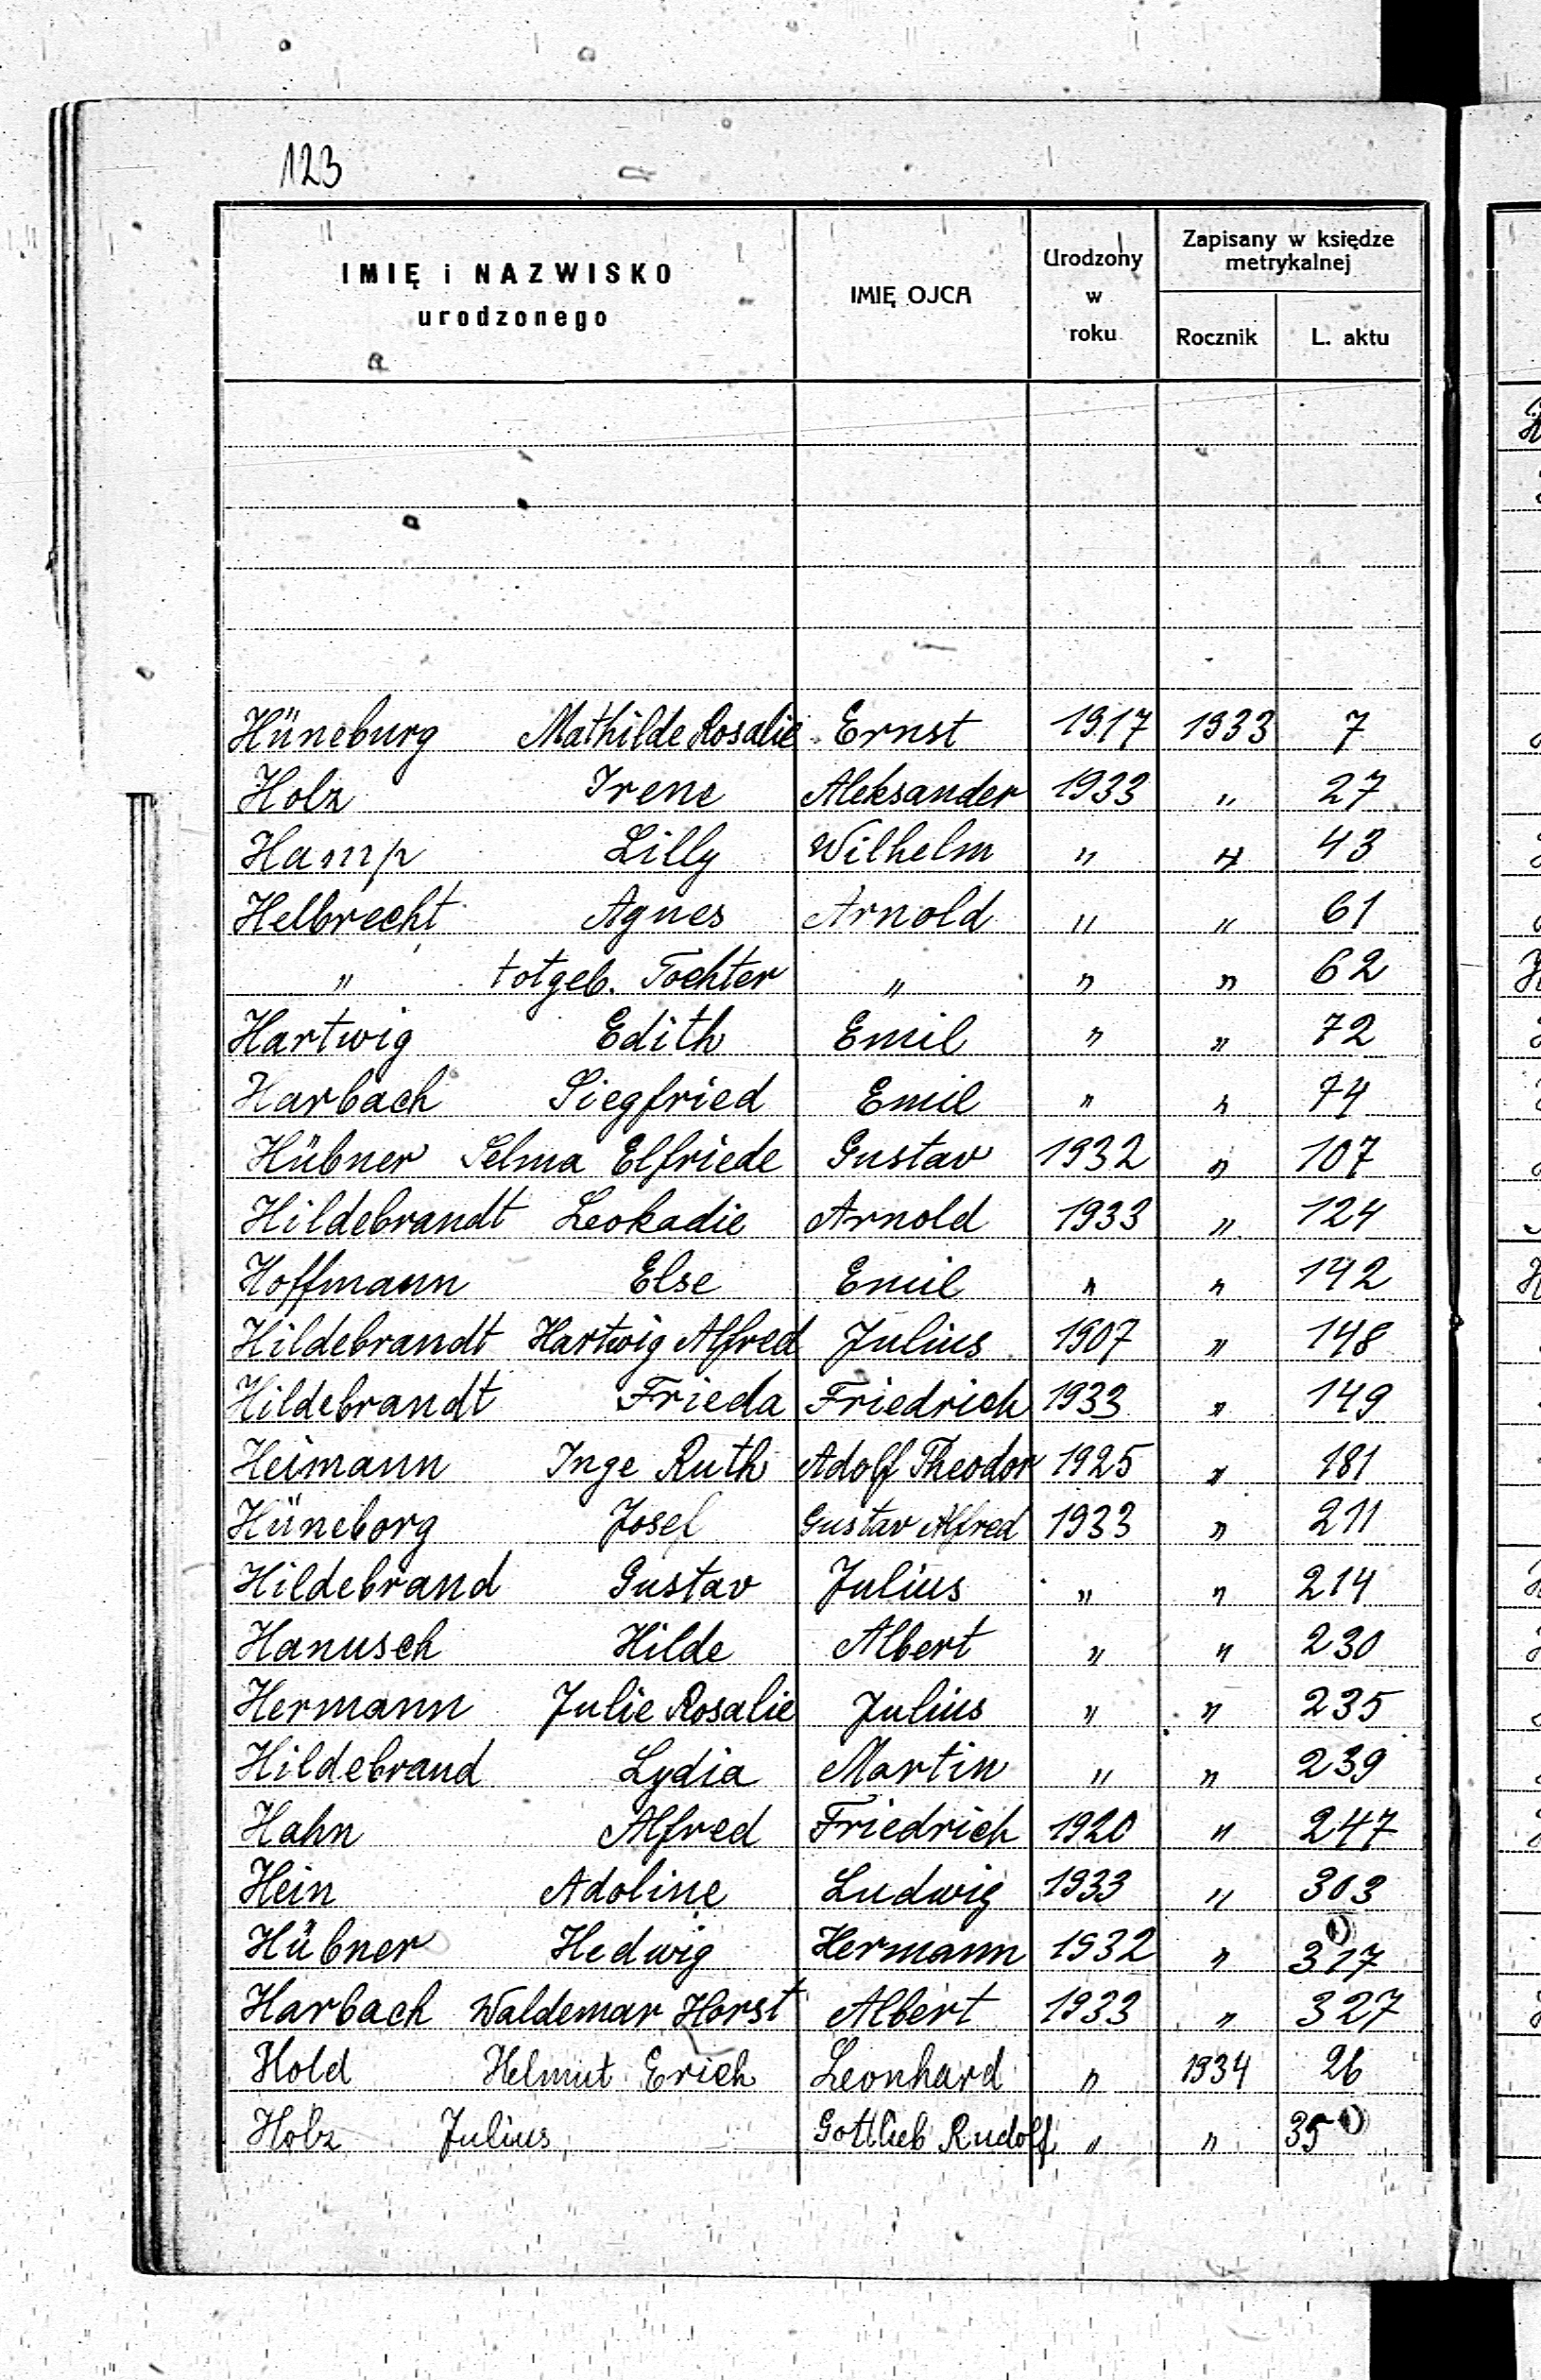 123
IMIĘ i NAZWISKO urodzonego | IMIĘ OJCA | Urodzony w roku | Zapisany w księdze metrykalnej
Rocznik | L. aktu
Hüneburg Mathilde Rosalie Ernst 1917 1933 7
Holz Irene Aleksander 1933 " 27
Hamp Lilly Wilhelm " " 43
Helbrecht Agnes Arnold " " 61
" totgeb. Tochter " " " 62
Hartwig Edith Emil " " 72
Harbach Siegfried Emil " " 74
Hübner Selma Elfriede Gustav 1932 " 107
Hildebrandt Leokadie Arnold 1933 " 124
Hoffmann Else Emil " " 142
Hildebrandt Hartwig Alfred Julius 1907 " 148
Hildebrandt Frieda Friedrich 1933 " 149
Heimann Inge Ruth Adolf Theodor 1925 " 181
Hüneborg Josef Gustav Alfred 1933 " 211
Hildebrand Gustav Julius " " 214
Hanusch Hilde Albert " " 230
Hermann Julie Rosalie Julius " " 235
Hildebrand Lydia Martin " " 239
Hahn Alfred Friedrich 1920 " 247
Hein Adoline Ludwig 1933 " 303
Hübner Hedwig Hermann 1932 " 317
Harbach Waldemar Horst Albert 1933 " 327
Hold Helmut Erich Leonhard " 1934 26
Holz Julius Gottlieb Rudolf " " 35